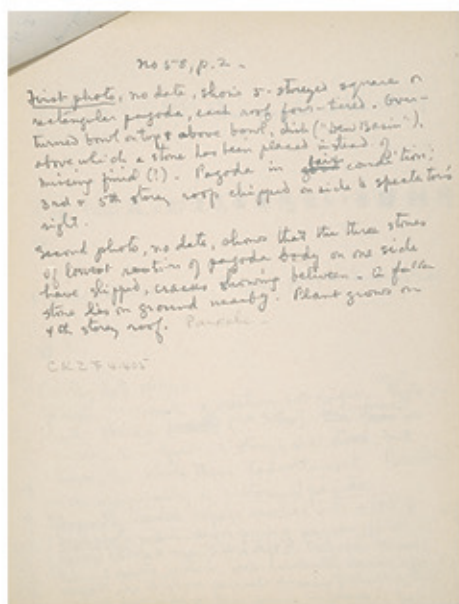 no 58, p. 2.
First photo, no date, shows 5-storeyed square or
rectangular pagoda, each roof four-tiered. Over-
turned bowl on top & above bowl, dish ("Dew Basin"),
above which a stone has been placed instead of
missing finial (!). Pagoda in fair condition;
3rd & 5th storey roofs chipped on side to spectator's
right.
Second photo, no date, shows that the three stones
of lowest section of pagoda body on one side
have slipped, cracks showing between. A fallen
stone lies on ground nearby. Plant grows on
4th storey roof.
CKZ F 4.405